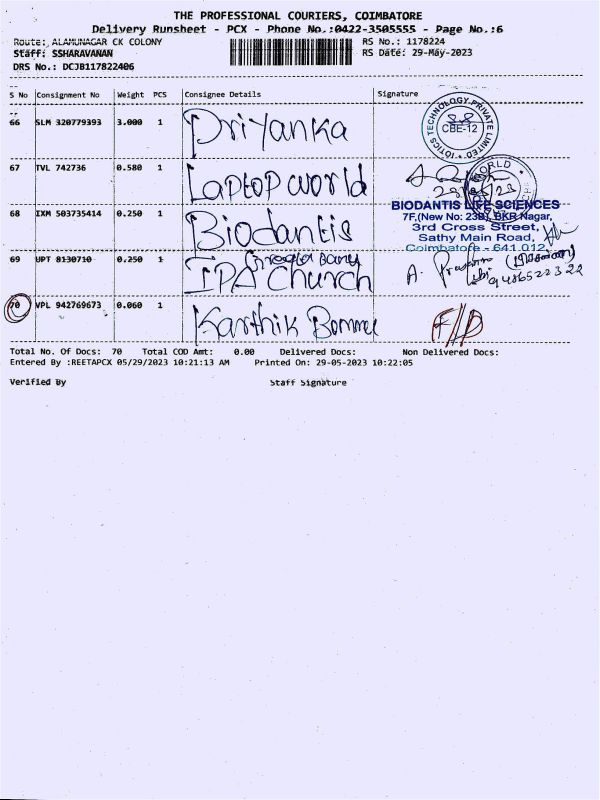 THE PROFESSIONAL COURIERS, COIMBATORE
Delivery Runsheet - PCX - Phone No.:0422-3505555 - Page No.:6
Route: ALAMUNAGAR CK COLONY RS No.: 1178224
Staff: SSHARAVANAN RS Date: 29-May-2023
DRS No.: DCJB117822406
S No Consignment No Weight PCS Consignee Details Signature
66 SLM 320779393 3.000 1 Priyanka
IOTICS TECHNOLOGY PRIVATE LIMITED
CBE-12
67 TVL 742736 0.580 1 Laptop world
WORLD
68 IXM 503735414 0.250 1 Biodantis
BIODANTIS LIFE SCIENCES
7F,(New No: 23B), BKR Nagar,
3rd Cross Street,
Sathy Main Road,
Coimbatore - 641 012
69 UPT 8130710 0.250 1 IPA Church
A.
9486522322
70 VPL 942769673 0.060 1 Karthik Bommu F/D
Total No. Of Docs: 70 Total COD Amt: 0.00 Delivered Docs: Non Delivered Docs:
Entered By :REETAPCX 05/29/2023 10:21:13 AM Printed On: 29-05-2023 10:22:05
Verified By Staff Signature